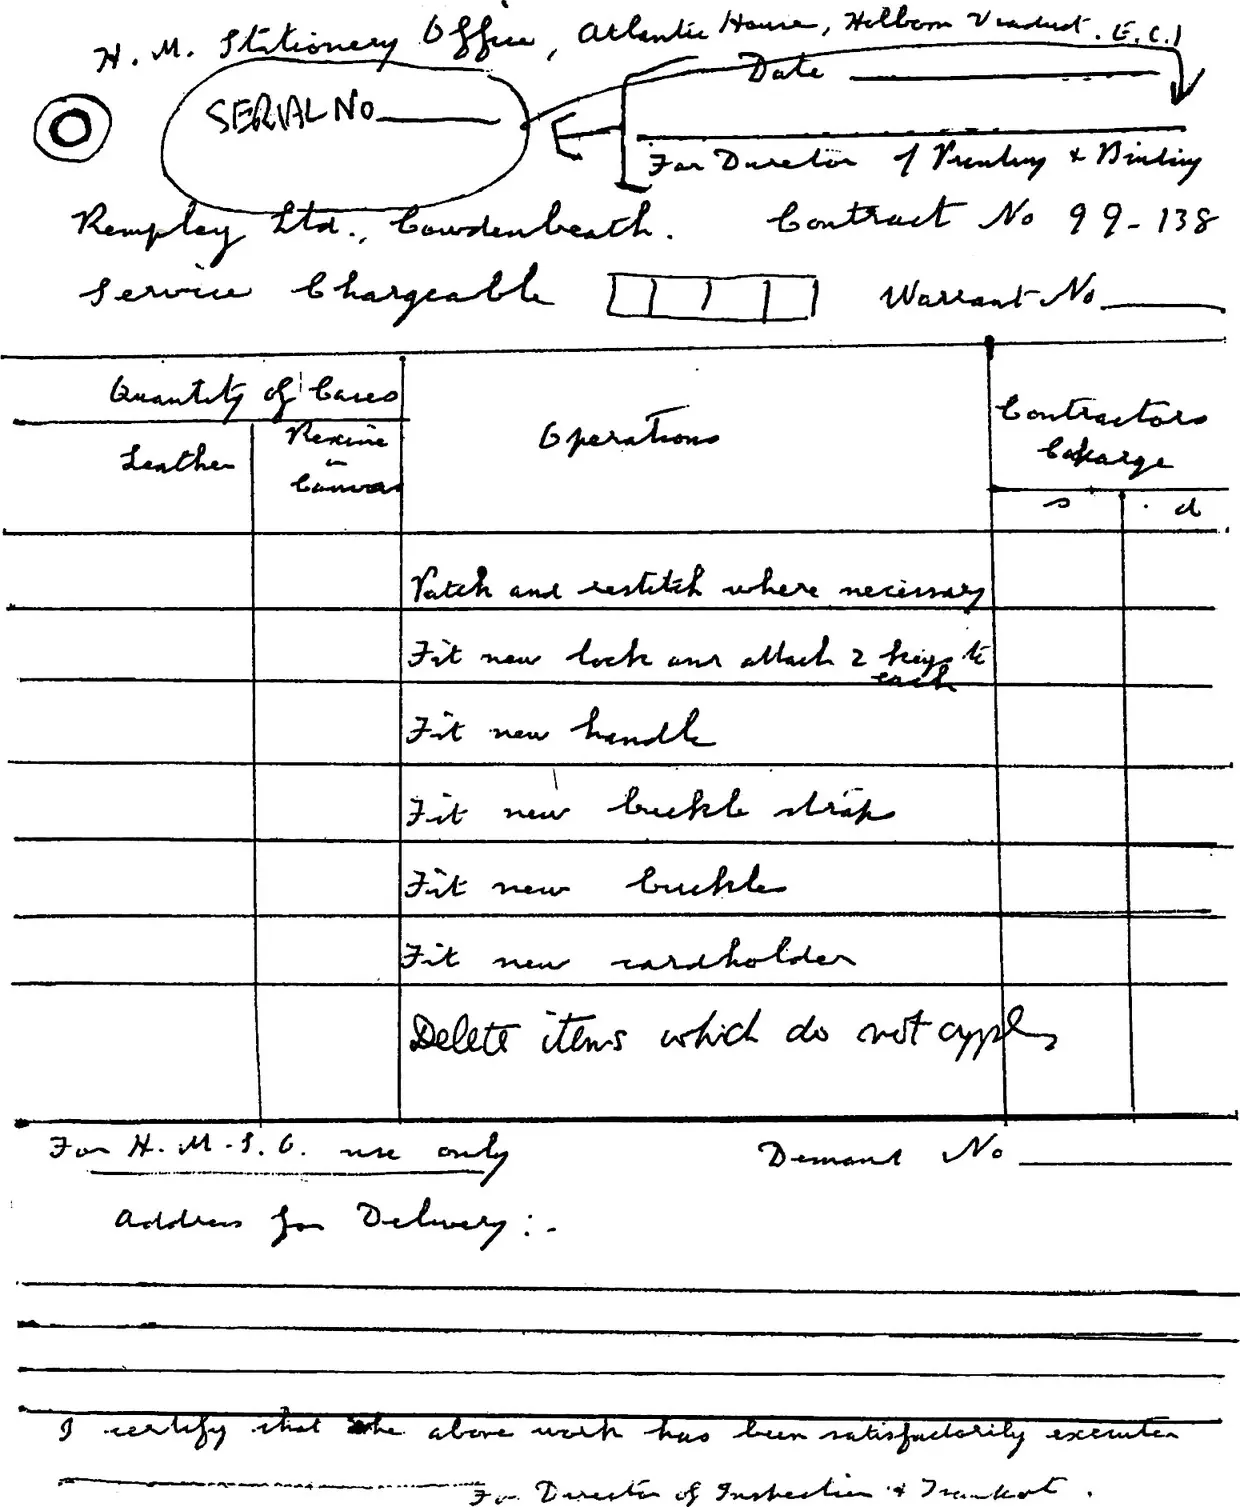 H. M. Stationery Office, Atlantic House, Holborn Viaduct. (E.C.)
Date
SERIAL No
For Director of Printing & Binding
Remploy Ltd., Cowdenbeath. Contract No 99-138
Service Chargeable Warrant No
Quantity of Cases
Operations
Contractors
Charge
Leather
Rexine
or
Canvas
s. d
Patch and restitch where necessary
Fit new lock and attach 2 keys to
each
Fit new handle
Fit new buckle straps
Fit new buckles
Fit new cardholder
Delete items which do not apply
For H.M.S.O. use only Demand No
Address for Delivery:-
I certify that the above work has been satisfactorily executed
For Director of Inspection & Transport.